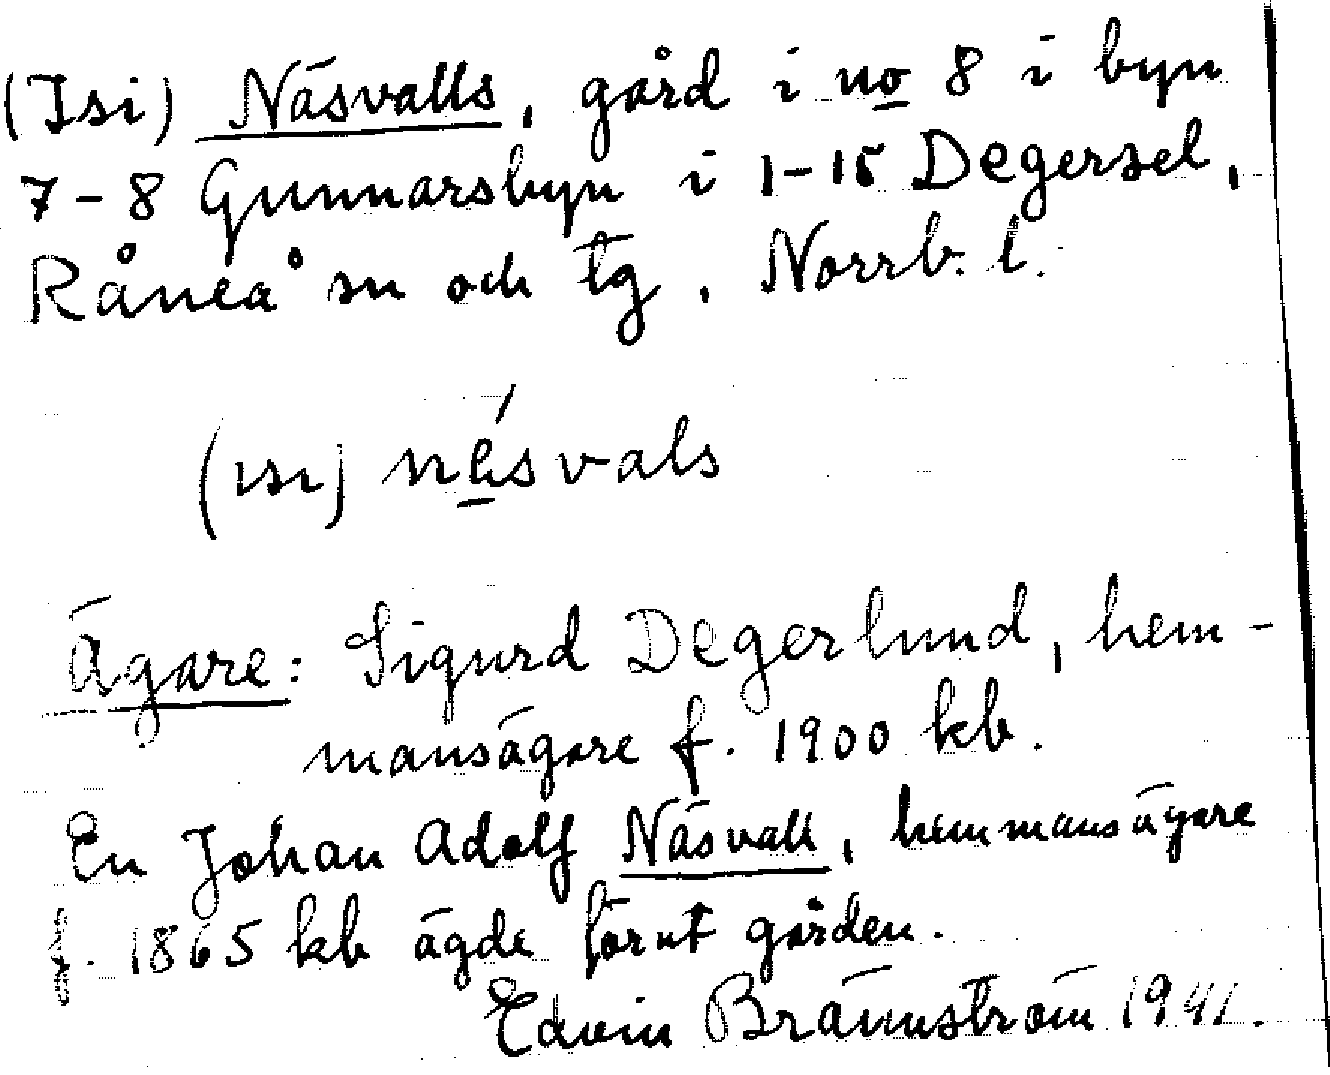 (Isi) Näsvalls, gård i no 8 i byn
7-8 Gunnarsbyn i 1-15 Degersel,
Råneå sn och tg, Norrb. l.
(ısı) nésvals
Ägare: Sigurd Degerlund, hem-
mansägare f. 1900 kb.
En Johan Adolf Näsvall, hemmansägare
f. 1865 kb ägde förut gården.
Edvin Brännström 1941.